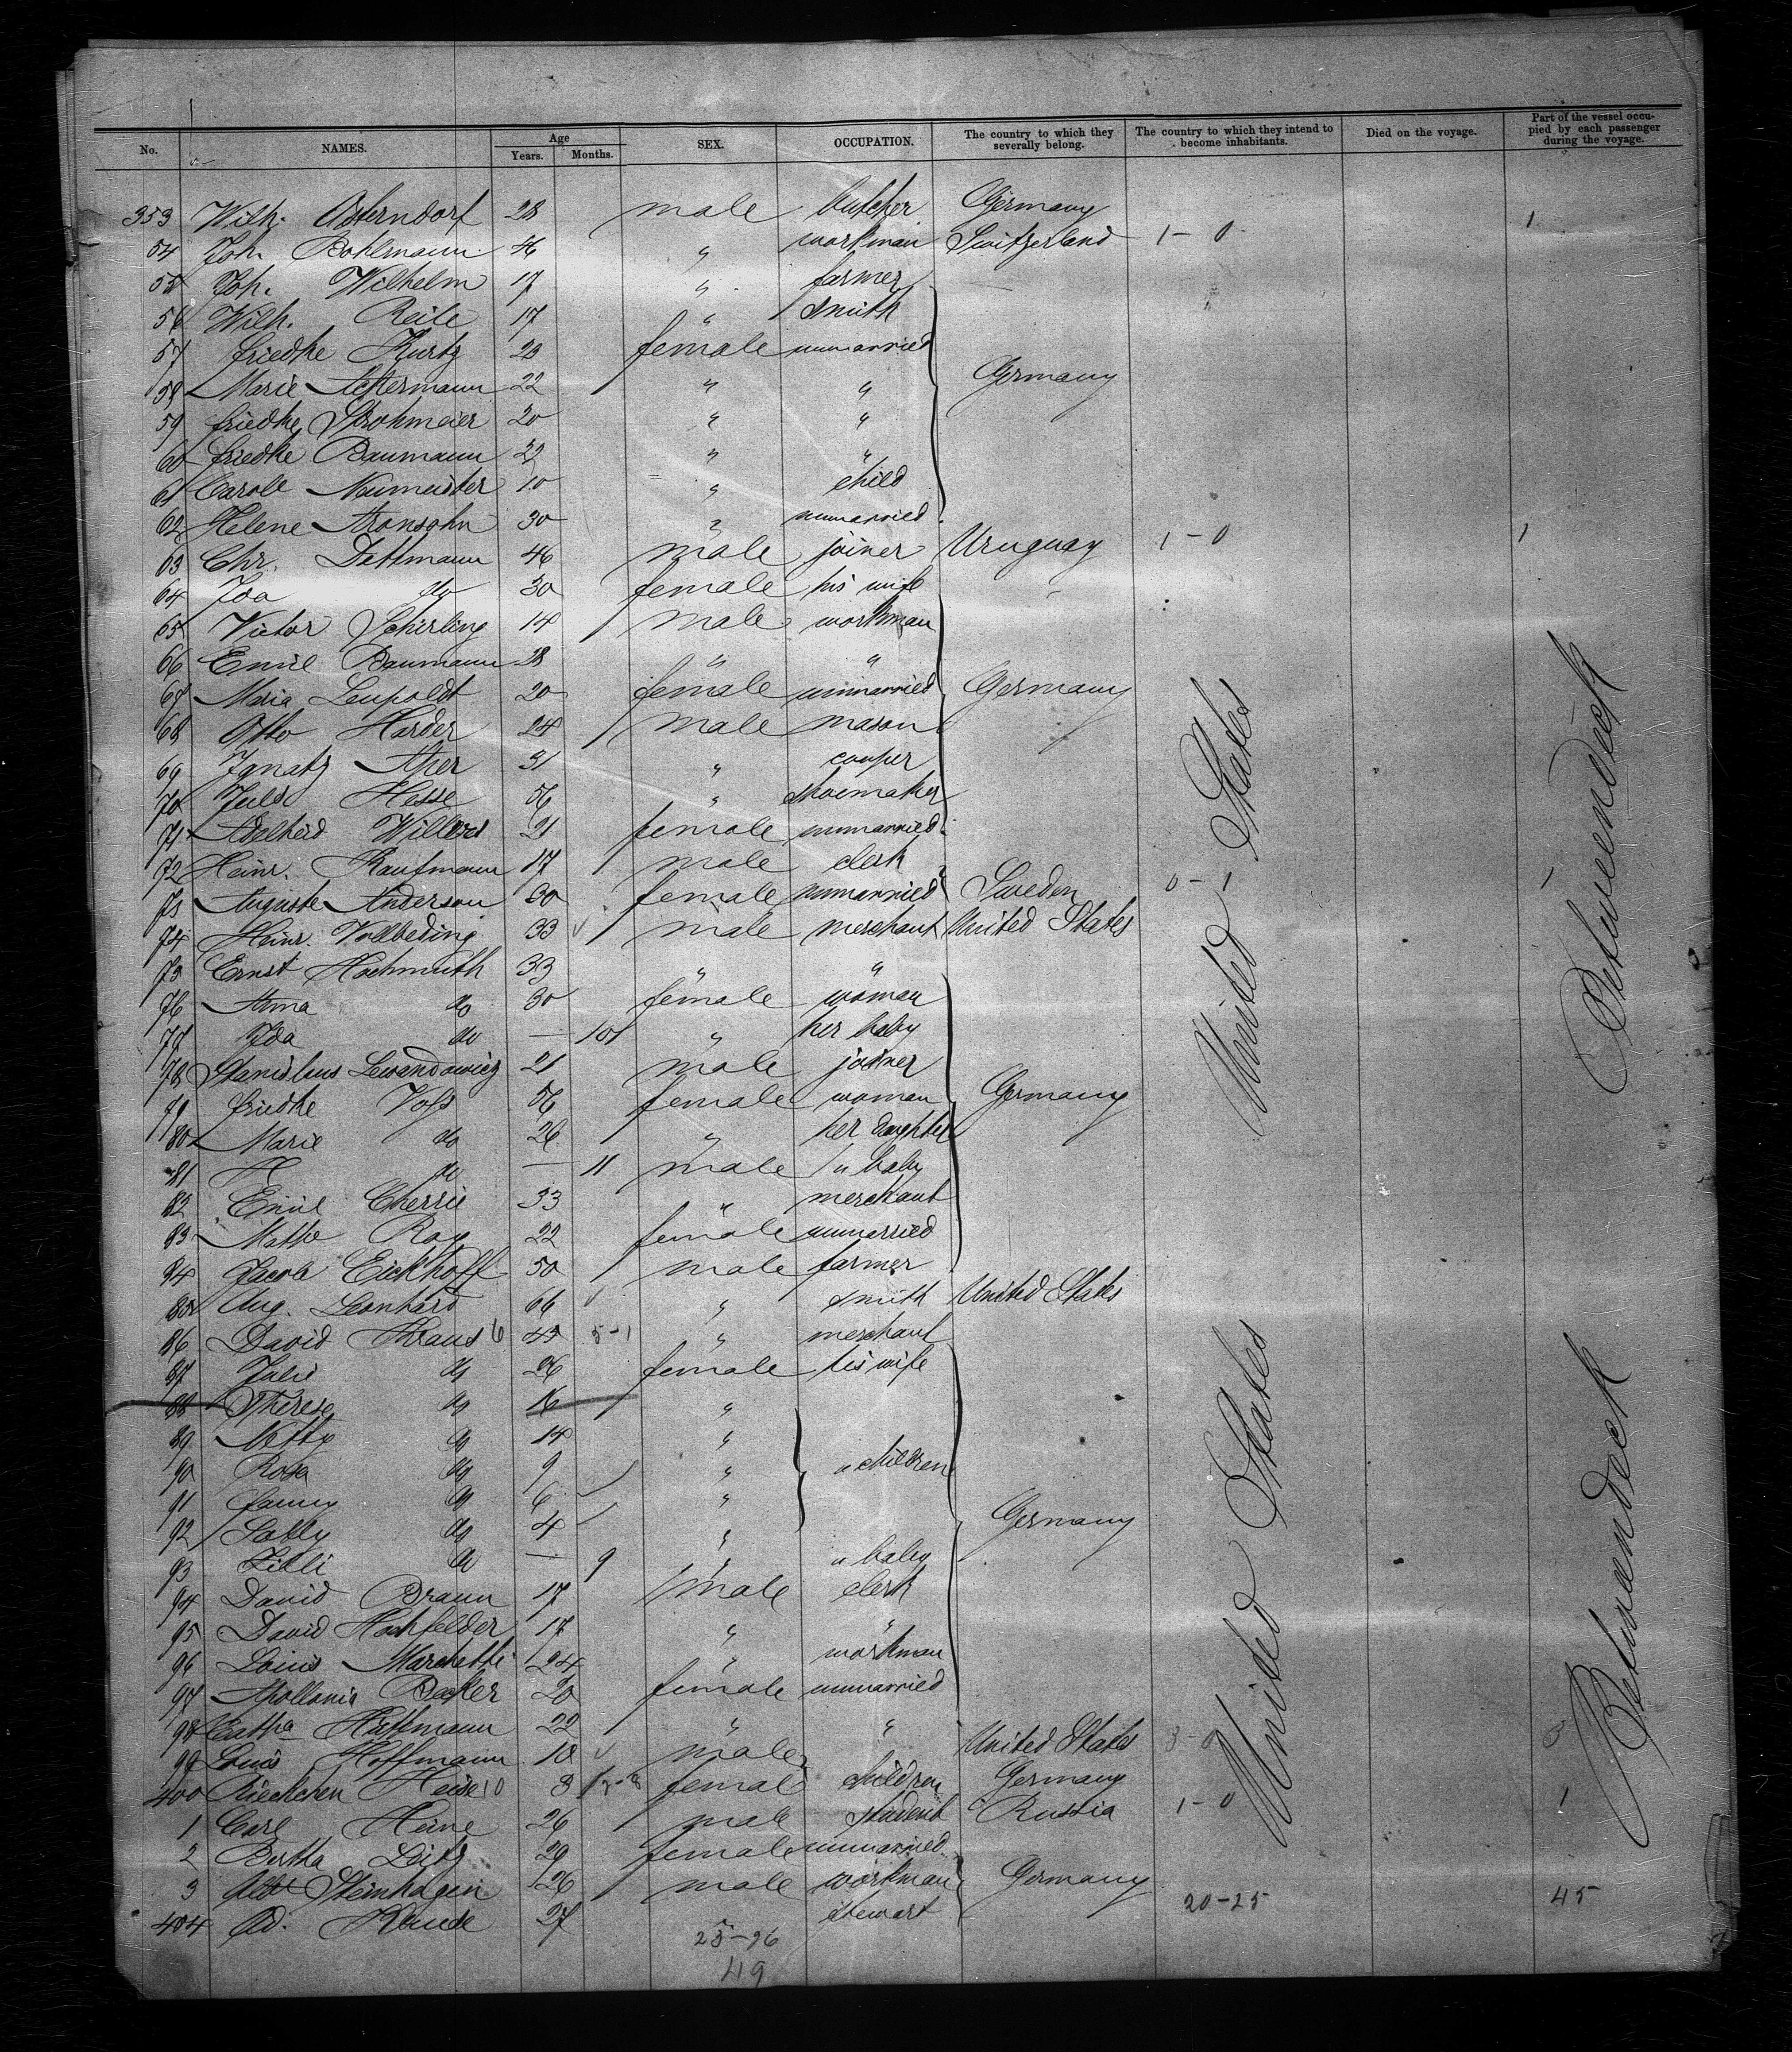 No. NAMES. Age Years. Months. SEX. OCCUPATION. The country to which they severally belong. The country to which they intend to become inhabitants. Died on the voyage. Part of the vessel occupied by each passenger during the voyage.
353 Wilh. Osterndorf 28 male butcher Germany 1
54 Joh. Bohlmann 46 " workman Switzerland 1-0
55 Joh. Wilhelm 17 " farmer
56 Wilh. 17 " smith
57 Friedke Kurtz 23 female unmarried
58 Marie Ackermann 22 " " Germany
59 Friedke Strohmeier 20 " "
60 Friedke Baumann 22 " "
61 Carole Neumeister 10 " child
62 Helene Aronsohn 30 " unmarried
63 Chr. Dettmann 46 male joiner Uruguay 1-0 1
64 Ida do 30 female his wife
65 Victor Schirling 14 male workman
66 Emil Baumann 28 " "
67 Maria Leupoldt 20 female unmarried Germany
68 Otto Harder 24 male mason
69 Ignatz 31 " couper
70 Juls Hesse 56 " shoemaker
71 Adelheid Willers 21 female unmarried
72 Heinr. Kaufmann 17 male clerk
73 Auguste Anderson 30 female unmarried Sweden 0-1 1
74 Heinr. Vollbeding 33 male merchant United States
75 Ernst Hochmuth 33 " "
76 Anna do 30 female woman
77 Ida do — 10 " her baby
78 Stanislaus Lewandowicz 21 male joiner
79 Friedke Voss 56 female woman Germany
80 Marie do 26 " her daughter
81 do — 11 male " baby
82 Emil Cherrie 33 " merchant
83 22 female unmarried
84 Jacob Eickhoff 50 male farmer
85 Aug. Leonhard 66 " smith United States
86 David Kraus 6 45 5-1 " merchant
87 Julie do 26 female his wife
88 Therese do 16 "
89 Netty do 14 "
90 Rosa do 9 " " children
91 Fanny do 6 "
92 Sally do 4 " Germany
93 Lilli do — 9 " " baby
94 David Braun 17 male clerk
95 David Hochfelder 17 " "
96 Louis Marchetti 24 " workman
97 Apollonia Becker 20 female unmarried
98 Catha Hoffmann 22 " " United States 3-0 3
99 Louis Hoffmann 10 male
400 Rieckchen 10 8 female children Germany
1 Carl Heine 26 male student Russia 1-0 1
2 Bertha 29 female unmarried
3 Steinhagen 26 male workman Germany
404 Ed. 27 stewart
20-25 45
25-26
49
United States
United States
Betweendeck
Betweendeck